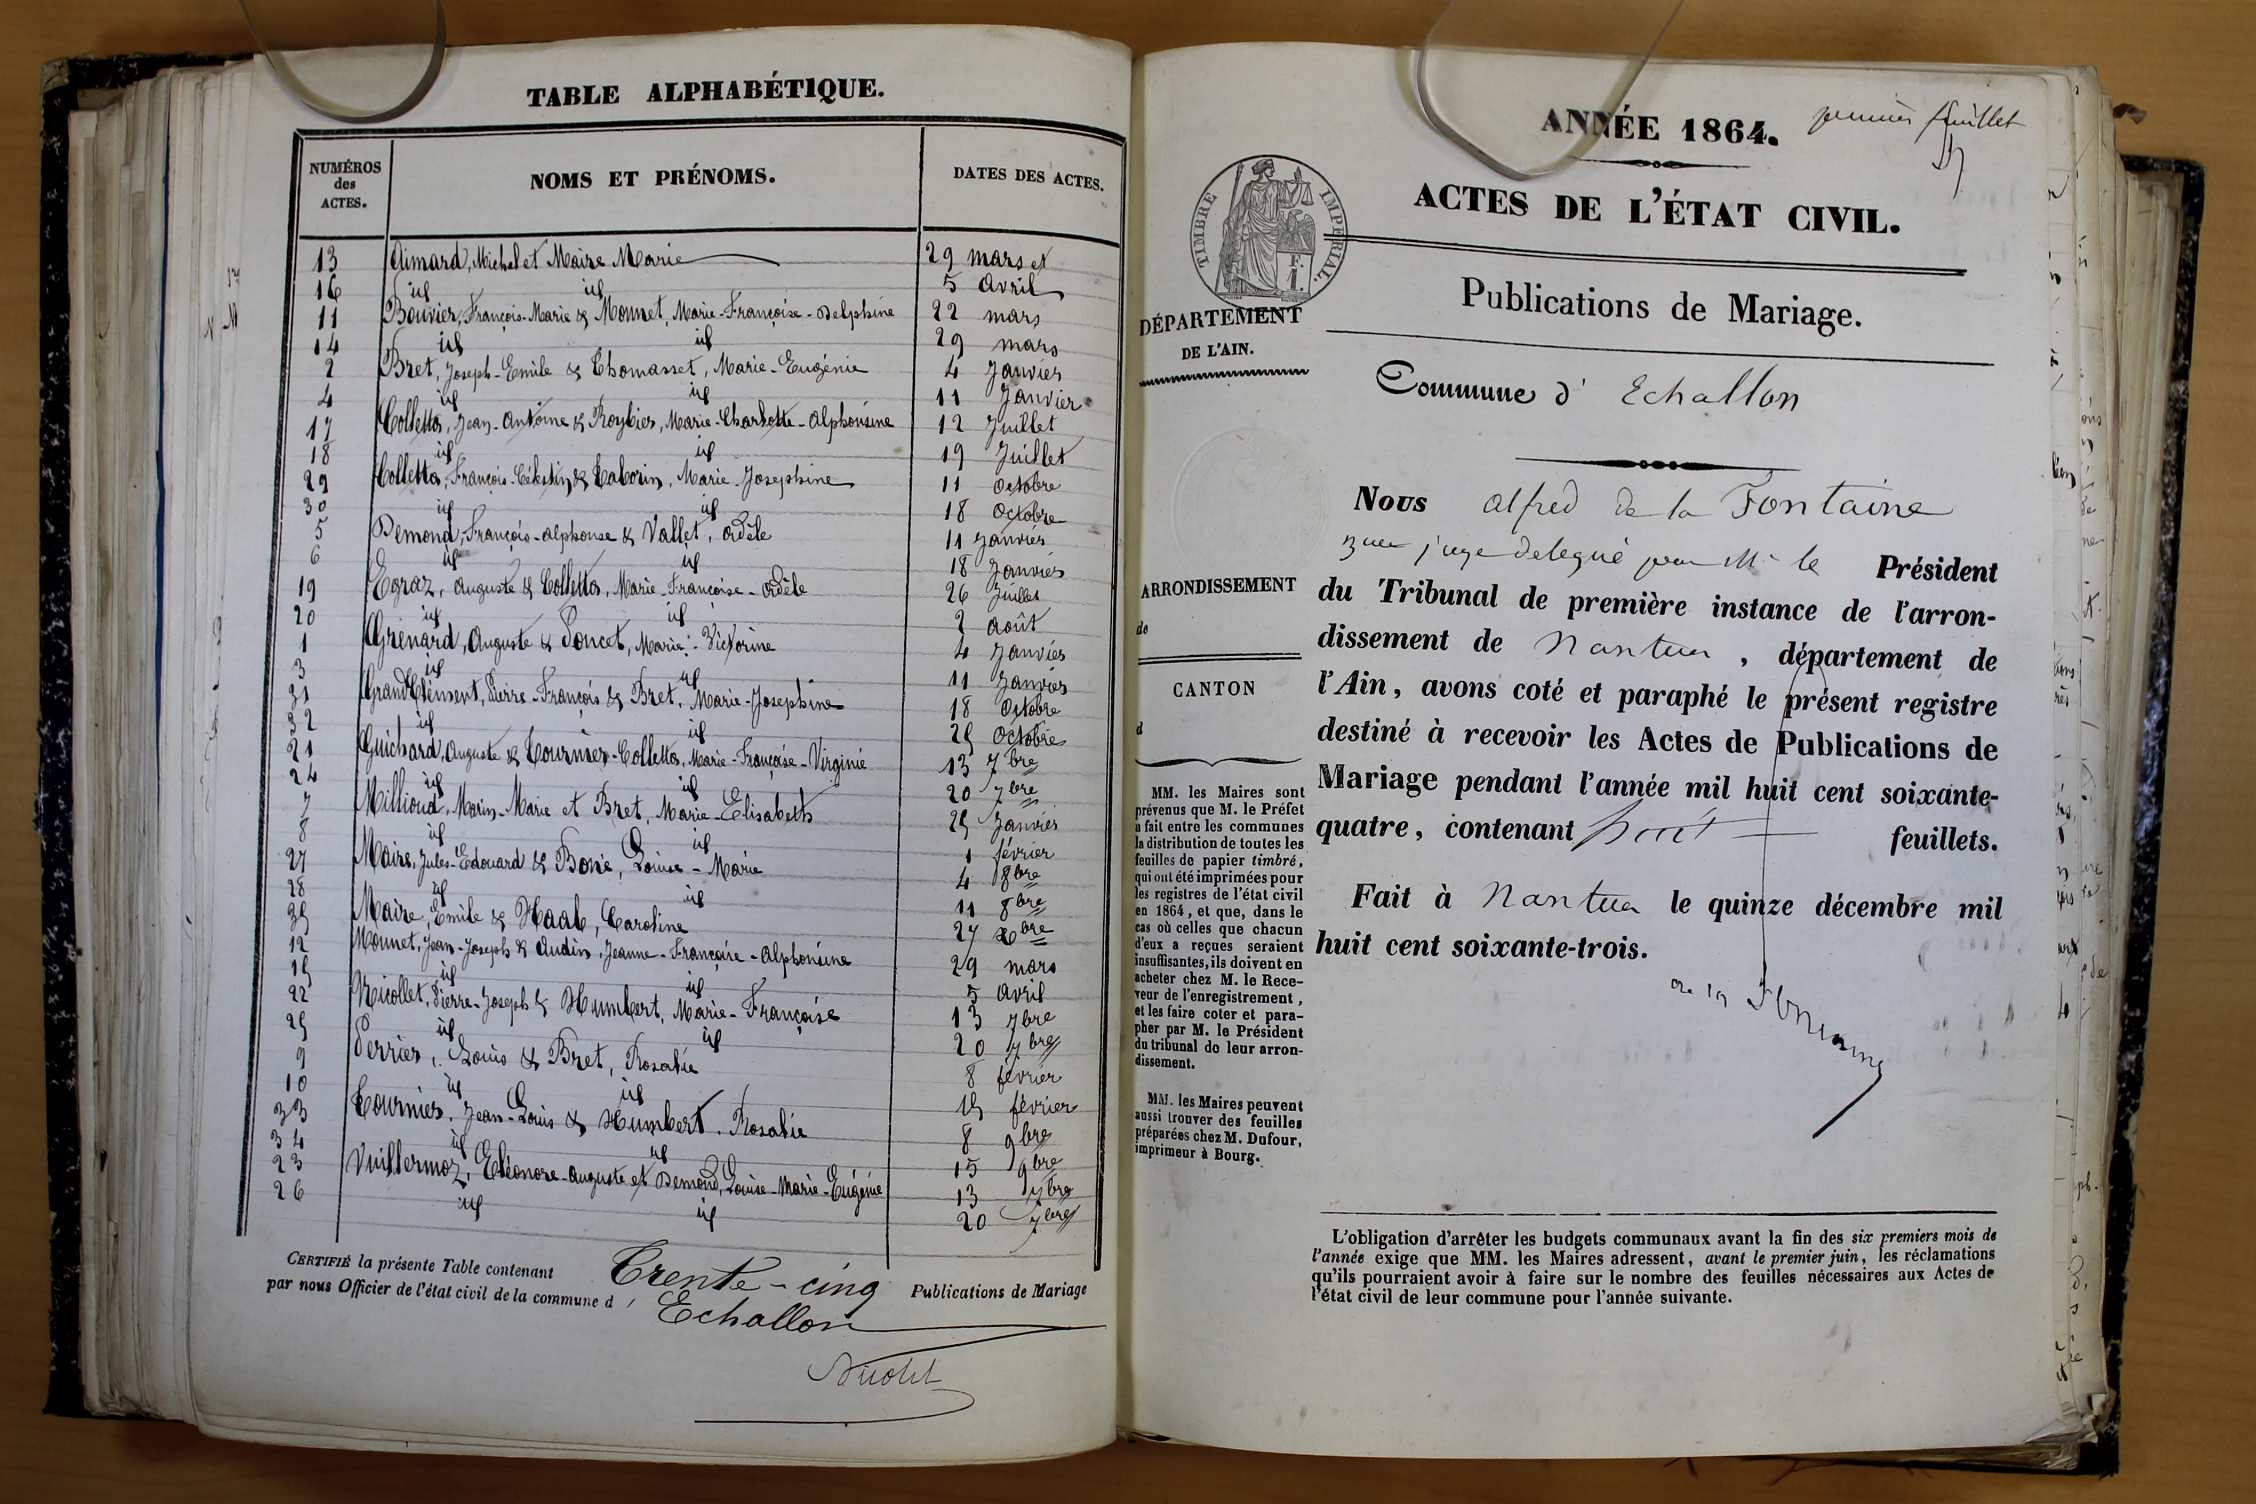 TABLE ALPHABÉTIQUE.
NUMÉROS des ACTES. NOMS ET PRÉNOMS. DATES DES ACTES.
13 Aimard, Michel et Maire Marie 29 mars et
16 id id 5 Avril
11 Bouvier, François-Marie & Monnet, Marie-Françoise-Delphine 22 mars
14 id id 29 mars
2 Bret, Joseph-Emile & Thomasset, Marie-Eugénie 4 Janvier
4 id id 11 Janvier
17 Colletta, Jean-Antoine & Roybier, Marie-Charlotte-Alphonsine 12 Juillet
18 id id 19 Juillet
29 Colletta, François-Célestin & Taborin, Marie-Josephine 11 Octobre
30 id id 18 Octobre
5 Demond, François-Alphonse & Vallet, Adèle 11 Janvier
6 id id 18 Janvier
19 Egraz, Auguste & Colletta, Marie-Françoise-Adèle 26 Juillet
20 id id 2 Août
1 Grenard, Auguste & Poncet, Marie-Victorine 4 Janvier
3 id id 11 Janvier
31 GrandClément, Pierre-François & Bret, Marie-Josephine 18 Octobre
32 id id 25 Octobre
21 Guichard, Auguste & Tournier-Colletta, Marie-Françoise-Virginie 13 7bre
24 id id 20 7bre
7 Millioud, Marin-Marie et Bret, Marie-Elisabeth 25 Janvier
8 id id 1 février
27 Maire, Jules-Edouard & Boné, Louise-Marie 4 8bre
28 id id 11 8bre
35 Maire, Emile & Haab, Caroline 27 Xbre
12 Monnet, Jean-Joseph & Audin, Jeanne-Françoise-Alphonsine 29 mars
15 id id 5 Avril
22 Nicollet, Pierre-Joseph & Humbert, Marie-Françoise 13 7bre
25 id id 20 7bre
9 Perrier, Louis & Bret, Rosalie 8 février
10 id id 15 février
33 Tournier, Jean-Louis & Humbert, Rosalie 8 9bre
34 id id 15 9bre
23 Vuillermoz, Eléonore-Auguste et Demond, Louise-Marie-Eugénie 13 7bre
26 id id 20 7bre
CERTIFIÉ la présente Table contenant Trente-cinq Publications de Mariage
par nous Officier de l'état civil de la commune d' Echallon
ANNÉE 1864.
premier feuillet
ACTES DE L'ÉTAT CIVIL.
TIMBRE IMPÉRIAL.
Publications de Mariage.
DÉPARTEMENT
DE L'AIN.
Commune d' Echallon
ARRONDISSEMENT
de
CANTON
d
MM. les Maires sont
prévenus que M. le Préfet
a fait entre les communes
la distribution de toutes les
feuilles de papier timbré,
qui ont été imprimées pour
les registres de l'état civil
en 1864, et que, dans le
cas où celles que chacun
d'eux a reçues seraient
insuffisantes, ils doivent en
acheter chez M. le Rece-
veur de l'enregistrement,
et les faire coter et para-
pher par M. le Président
du tribunal de leur arron-
dissement.
MM. les Maires peuvent
aussi trouver des feuilles
préparées chez M. Dufour,
imprimeur à Bourg.
Nous Alfred de la Fontaine
juge délégué pour Mr le Président
du Tribunal de première instance de l'arron-
dissement de Nantua, département de
l'Ain, avons coté et paraphé le présent registre
destiné à recevoir les Actes de Publications de
Mariage pendant l'année mil huit cent soixante-
quatre, contenant feuillets.
Fait à Nantua le quinze décembre mil
huit cent soixante-trois.
de la Fontaine
L'obligation d'arrêter les budgets communaux avant la fin des six premiers mois de
l'année exige que MM. les Maires adressent, avant le premier juin, les réclamations
qu'ils pourraient avoir à faire sur le nombre des feuilles nécessaires aux Actes de
l'état civil de leur commune pour l'année suivante.